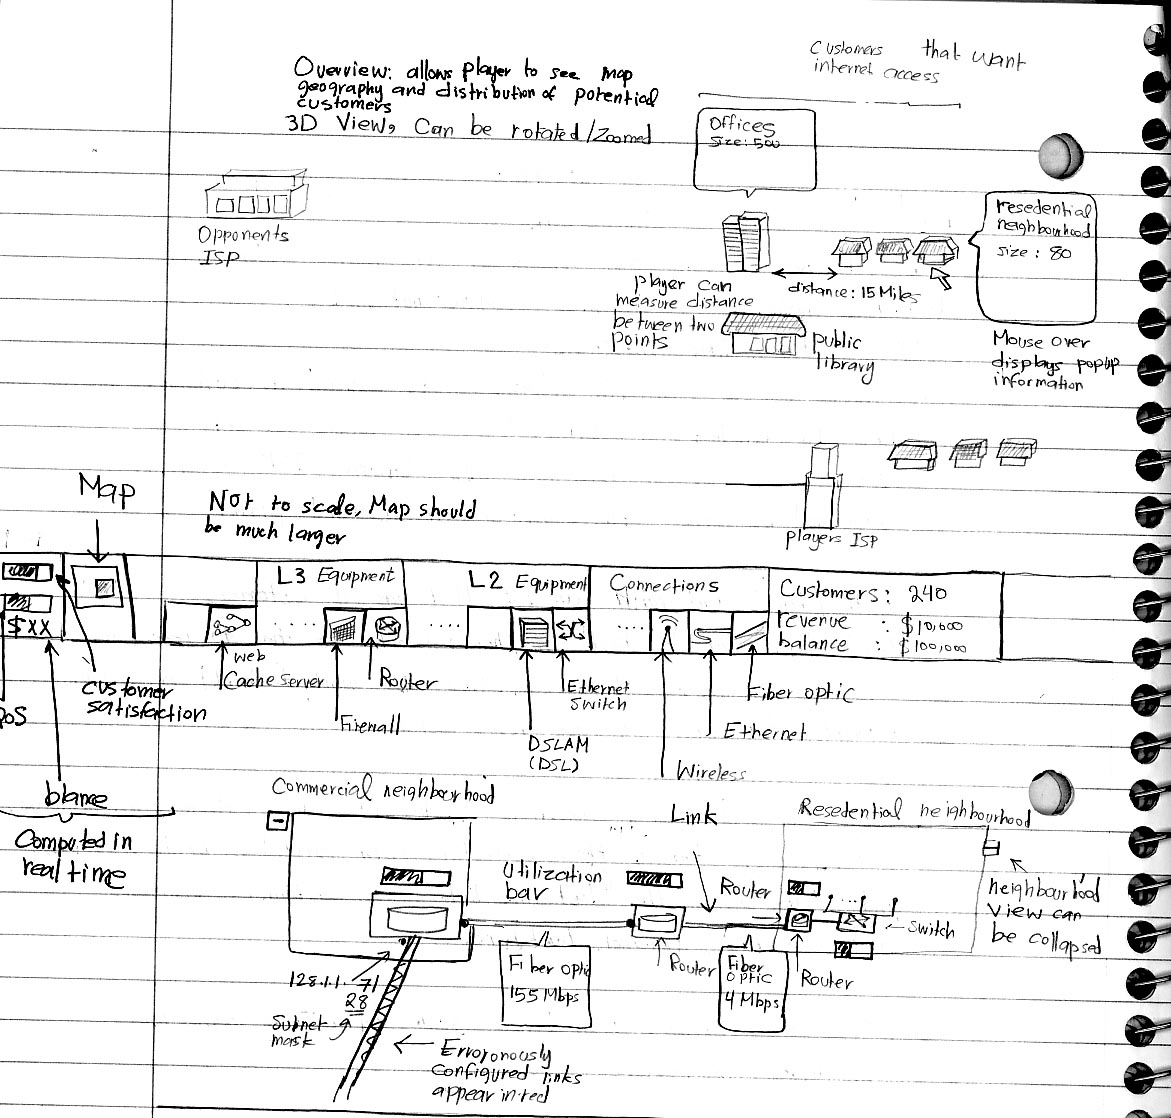 Customers that want
internet access
Overview: allows player to see map
geography and distribution of potential
customers
3D View, Can be rotated/Zoomed
Offices
Size: 500
resedential
neighbourhood
size: 80
Opponents
ISP
player can
measure distance
between two
points
distance: 15 Miles
public
library
Mouse over
displays popup
information
players ISP
Map
Not to scale, Map should
be much larger
L3 Equipment
L2 Equipment
Connections
Customers: 240
revenue : $10,000
balance : $100,000
$XX
web
Cache server
Router
Firewall
Ethernet
Switch
DSLAM
(DSL)
Fiber optic
Ethernet
Wireless
customer
satisfaction
QoS
blance
Computed in
real time
Commercial neighbourhood
Link
Resedential neighbourhood
Utilization
bar
Router
Switch
neighbourhood
view can
be collapsed
Router
Router
Fiber optic
155 Mbps
Fiber
optic
4 Mbps
128.1.1.71
28
Subnet
mask
Erroronously
configured links
appear in red